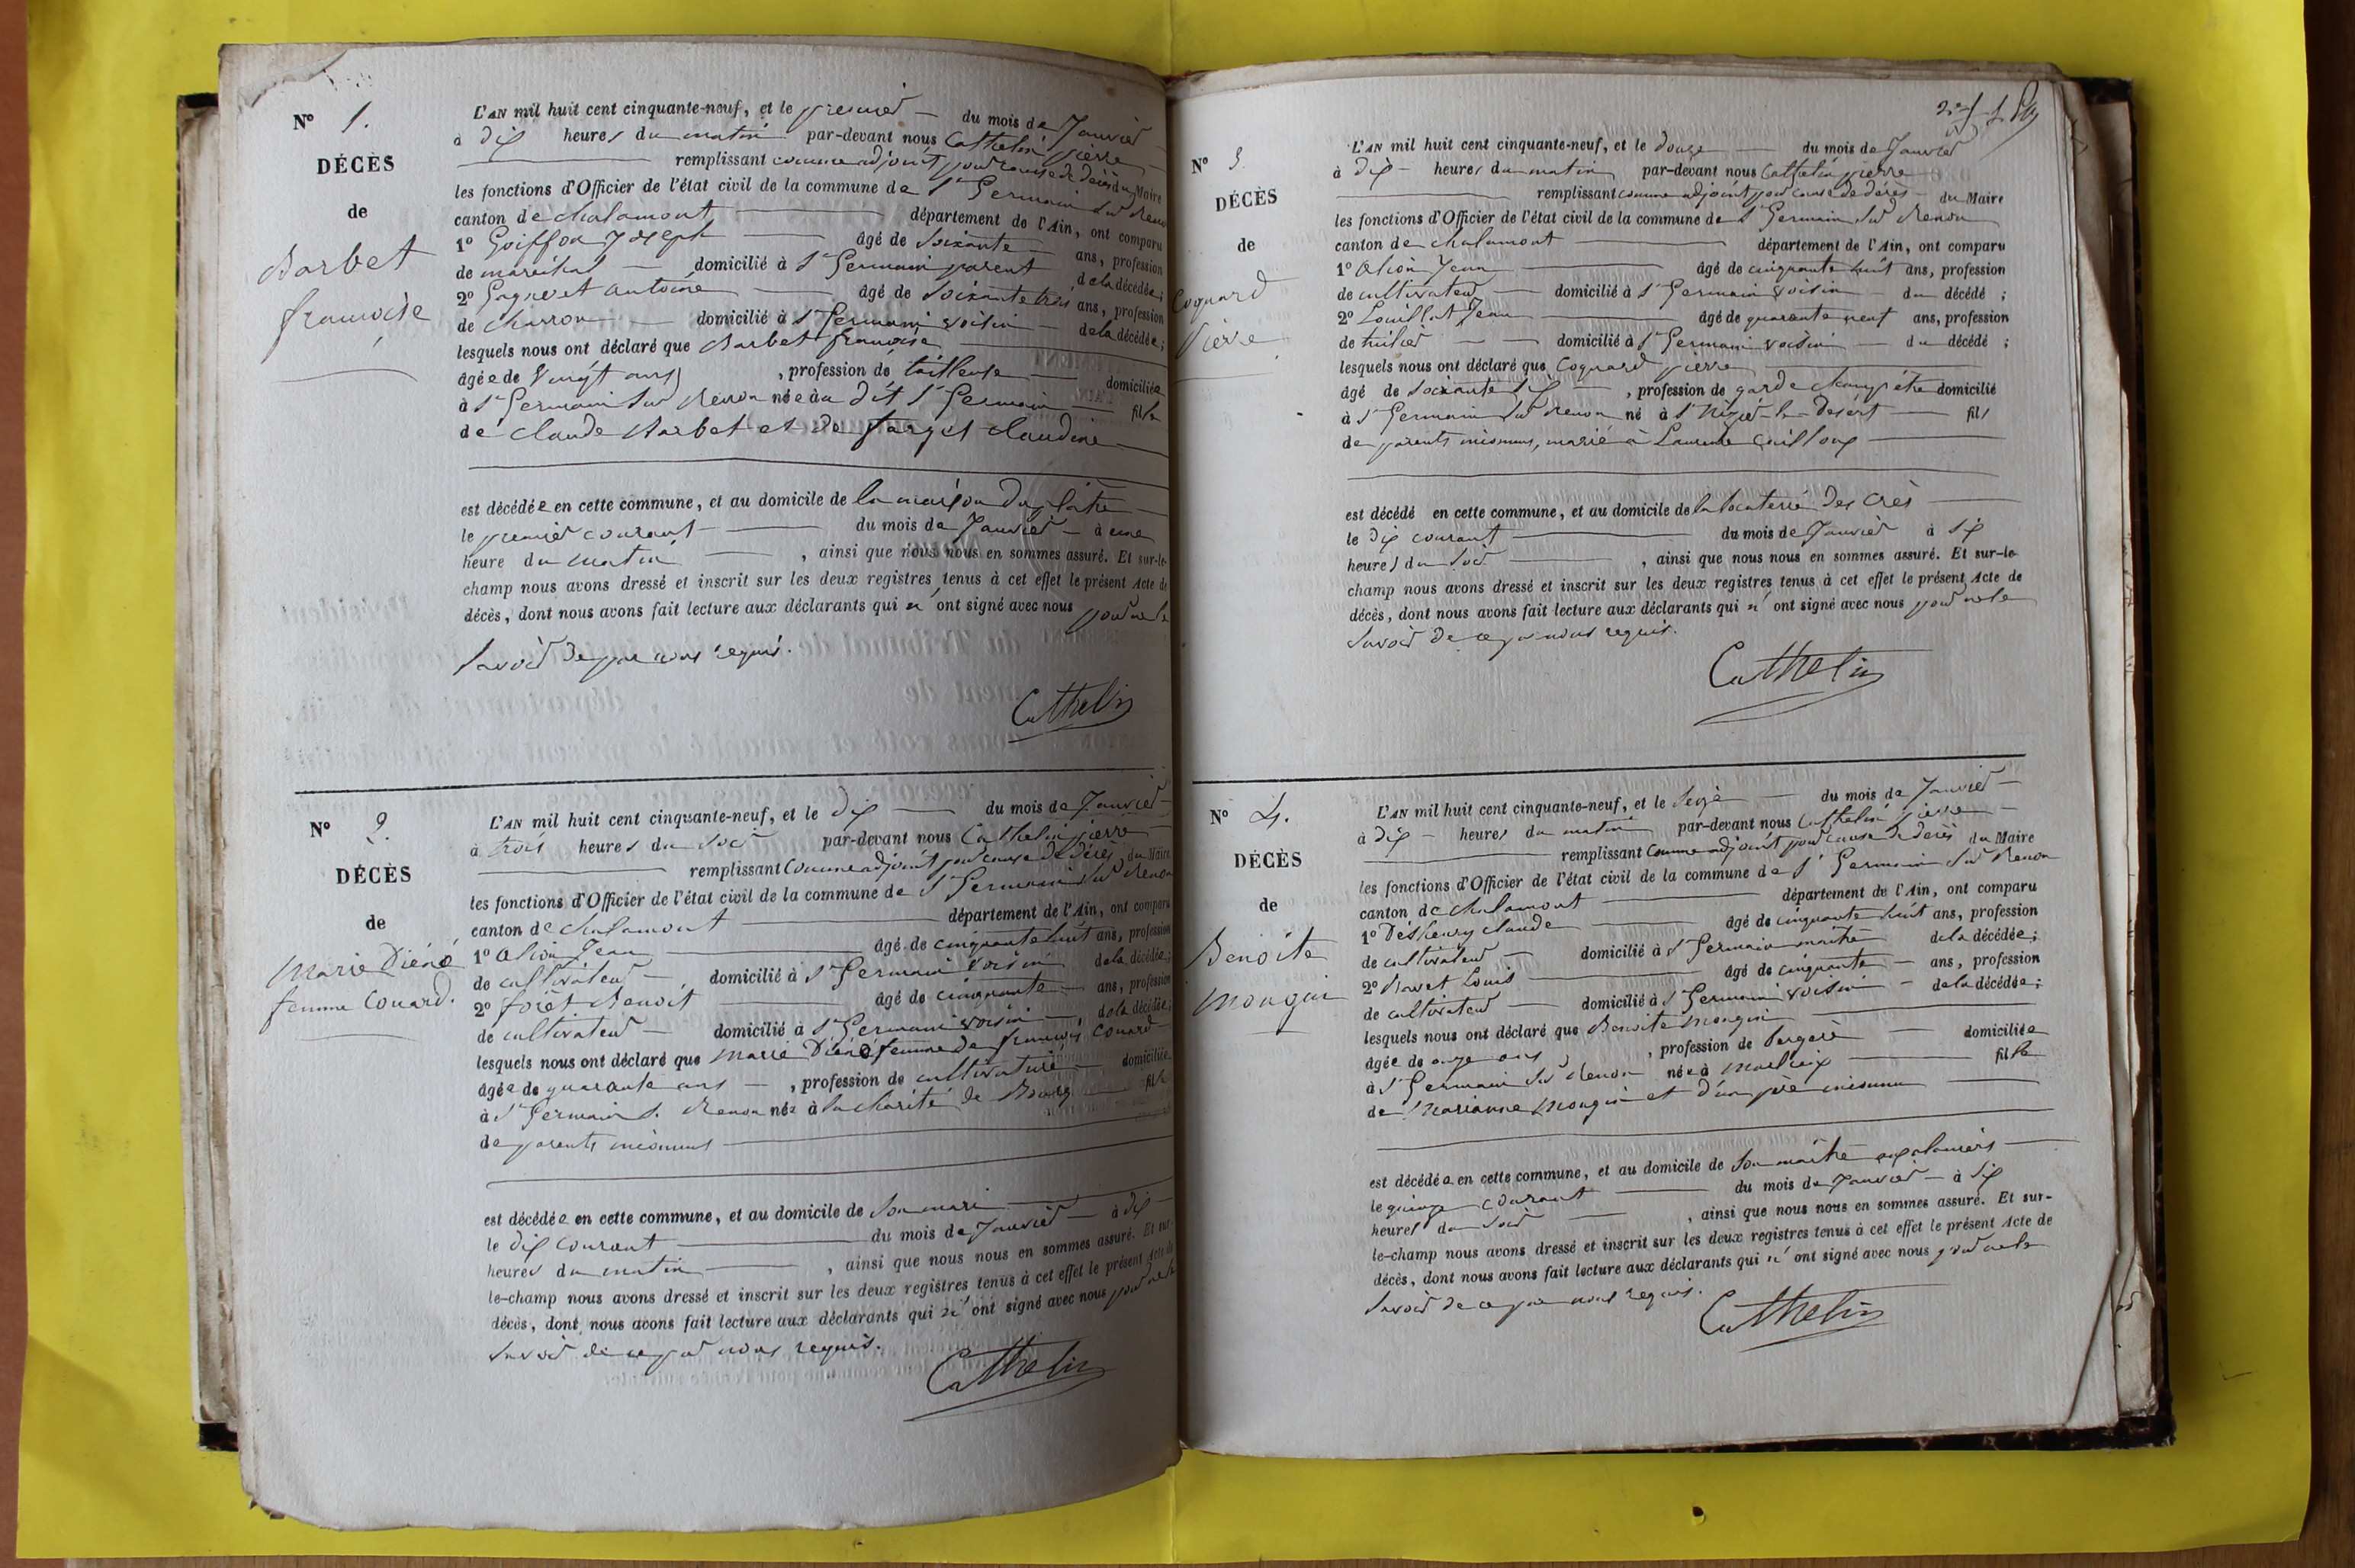 N° 1.
DÉCÈS
de
Barbet
françoise
L'AN mil huit cent cinquante-neuf, et le premier du mois de Janvier
à dix heures du matin par-devant nous Cathelin pierre
remplissant comme adjoint pour cause de décès du Maire
les fonctions d'Officier de l'état civil de la commune de St Germain sur Renon
canton de chalamont département de l'Ain, ont comparu
1° Goiffon Joseph âgé de soixante ans, profession
de maréchal domicilié à St Germain parent de la décédée;
2° Gagnevet antoine âgé de soixante trois ans, profession
de charron domicilié à St Germain voisin de la décédée;
lesquels nous ont déclaré que Barbet françoise
âgée de vingt ans, profession de tailleuse domiciliée
à St Germain sur Renon née au dit St Germain fille
de claude Barbet et de farget claudine
est décédée en cette commune, et au domicile de la maison du plâtre
le premier courant du mois de Janvier à une
heure du matin, ainsi que nous nous en sommes assuré. Et sur-le-
champ nous avons dressé et inscrit sur les deux registres tenus à cet effet le présent Acte de
décès, dont nous avons fait lecture aux déclarants qui n'ont signé avec nous pour ne le
savoir de par nous requis.
Cathelin
N° 2.
DÉCÈS
de
Marie Diéné
femme Couard.
L'AN mil huit cent cinquante-neuf, et le dix du mois de Janvier
à trois heures du soir par-devant nous Cathelin pierre
remplissant comme adjoint pour cause de décès du Maire
les fonctions d'Officier de l'état civil de la commune de St Germain sur Renon
canton de chalamont département de l'Ain, ont comparu
1° Jean âgé de cinquante huit ans, profession
de cultivateur domicilié à St Germain voisin de la décédée;
2° forêt Benoit âgé de cinquante ans, profession
de cultivateur domicilié à St Germain voisin, de la décédée;
lesquels nous ont déclaré que marie Diéné femme de françois Couard
âgée de quarante ans, profession de cultivature domiciliée
à St Germain s. Renon née à la charité de Bourg fille
de parents inconnus
est décédée en cette commune, et au domicile de son mari
le dix courant du mois de Janvier à dix
heures du matin, ainsi que nous nous en sommes assuré. Et sur-
le-champ nous avons dressé et inscrit sur les deux registres tenus à cet effet le présent Acte de
décès, dont nous avons fait lecture aux déclarants qui n'ont signé avec nous pour ne le
savoir de ce par nous requis.
Cathelin
N° 3.
DÉCÈS
de
Coquard
Pierre
L'AN mil huit cent cinquante-neuf, et le douze du mois de Janvier
à dix heures du matin par-devant nous Cathelin pierre
remplissant comme adjoint pour cause de décès du Maire
les fonctions d'Officier de l'état civil de la commune de St Germain sur Renon
canton de chalamont département de l'Ain, ont comparu
1° Jean âgé de cinquante huit ans, profession
de cultivateur domicilié à St Germain voisin du décédé;
2° Louillat Jean âgé de quarante neuf ans, profession
de tuilier domicilié à St Germain voisin du décédé;
lesquels nous ont déclaré que Coquard pierre
âgé de soixante dix, profession de garde champêtre domicilié
à St Germain sur Renon né à St Nizier le Désert fils
de parents inconnus, marié à Laurence
est décédé en cette commune, et au domicile de la locaterie des Crès
le dix courant du mois de Janvier à six
heures du soir, ainsi que nous nous en sommes assuré. Et sur-le-
champ nous avons dressé et inscrit sur les deux registres tenus à cet effet le présent Acte de
décès, dont nous avons fait lecture aux déclarants qui n'ont signé avec nous pour ne le
savoir de ce par nous requis.
Cathelin
N° 4.
DÉCÈS
de
Benoite
Mongin
L'AN mil huit cent cinquante-neuf, et le seize du mois de Janvier
à dix heures du matin par-devant nous Cathelin pierre
remplissant comme adjoint pour cause de décès du Maire
les fonctions d'Officier de l'état civil de la commune de St Germain sur Renon
canton de chalamont département de l'Ain, ont comparu
1° claude âgé de cinquante huit ans, profession
de cultivateur domicilié à St Germain maître de la décédée;
2° Louis âgé de cinquante ans, profession
de cultivateur domicilié à St Germain voisin de la décédée;
lesquels nous ont déclaré que Benoite Mongin
âgée de onze ans, profession de bergère domiciliée
à St Germain sur Renon née à Marlieux fille
de Marianne Mongin et d'un père inconnu
est décédée en cette commune, et au domicile de son maître
le quinze courant du mois de Janvier à six
heures du soir, ainsi que nous nous en sommes assuré. Et sur-
le-champ nous avons dressé et inscrit sur les deux registres tenus à cet effet le présent Acte de
décès, dont nous avons fait lecture aux déclarants qui n'ont signé avec nous pour ne le
savoir de ce par nous requis.
Cathelin